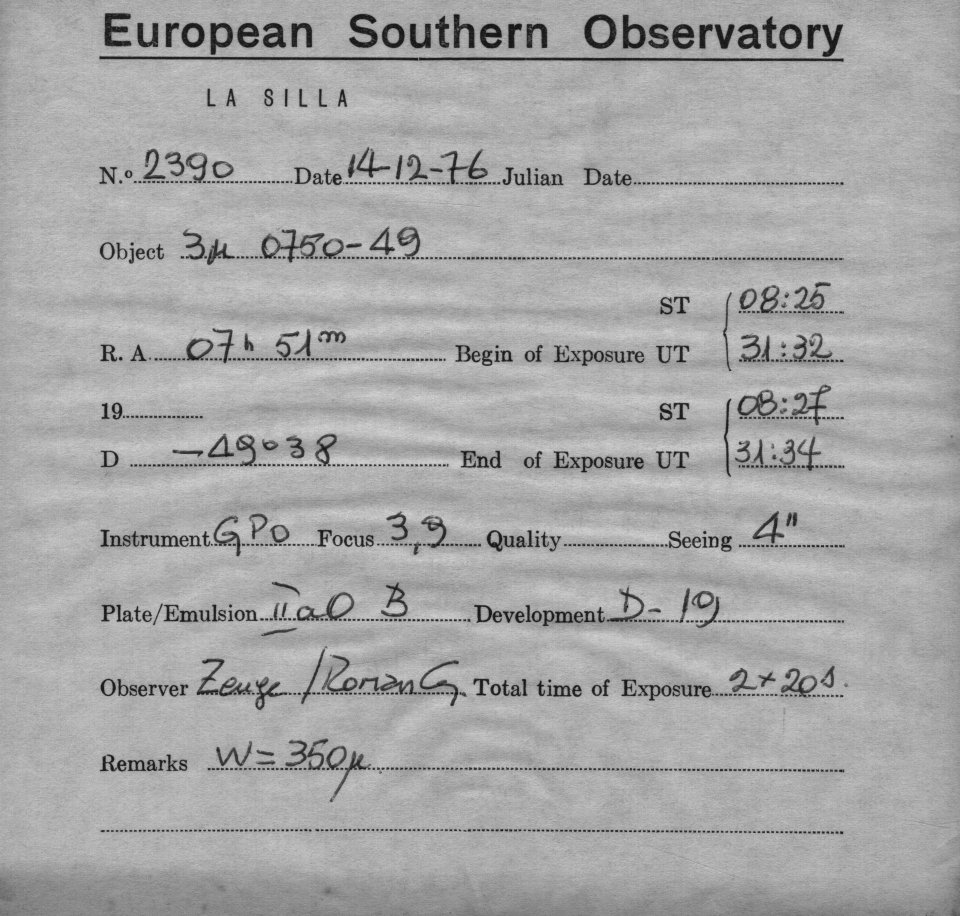 European Southern Observatory
LA SILLA
N.º 2390 Date 14-12-76 Julian Date
Object 3µ 0750-49
ST 08:25
R. A 07h 51m Begin of Exposure UT 31:32
19 ST 08:27
D -49° 38 End of Exposure UT 31:34
Instrument GPO Focus 3,9 Quality Seeing 4"
Plate/Emulsion IIaO B Development D-19
Observer Zeuge / Total time of Exposure 2+20s.
Remarks W=350µ